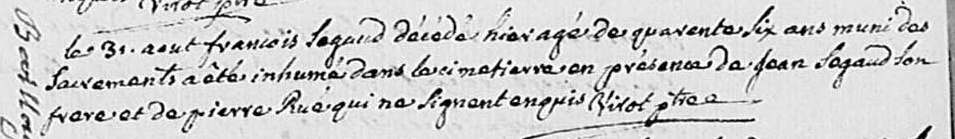 Virot ptre
le 31. aout francois Segaud décédé hier agé de quarente six ans muni des
Sacrements a êté inhumé dans le cimetierre en présence de Jean Segaud son
frere et de pierre Rué qui ne signent enquis Virot ptre